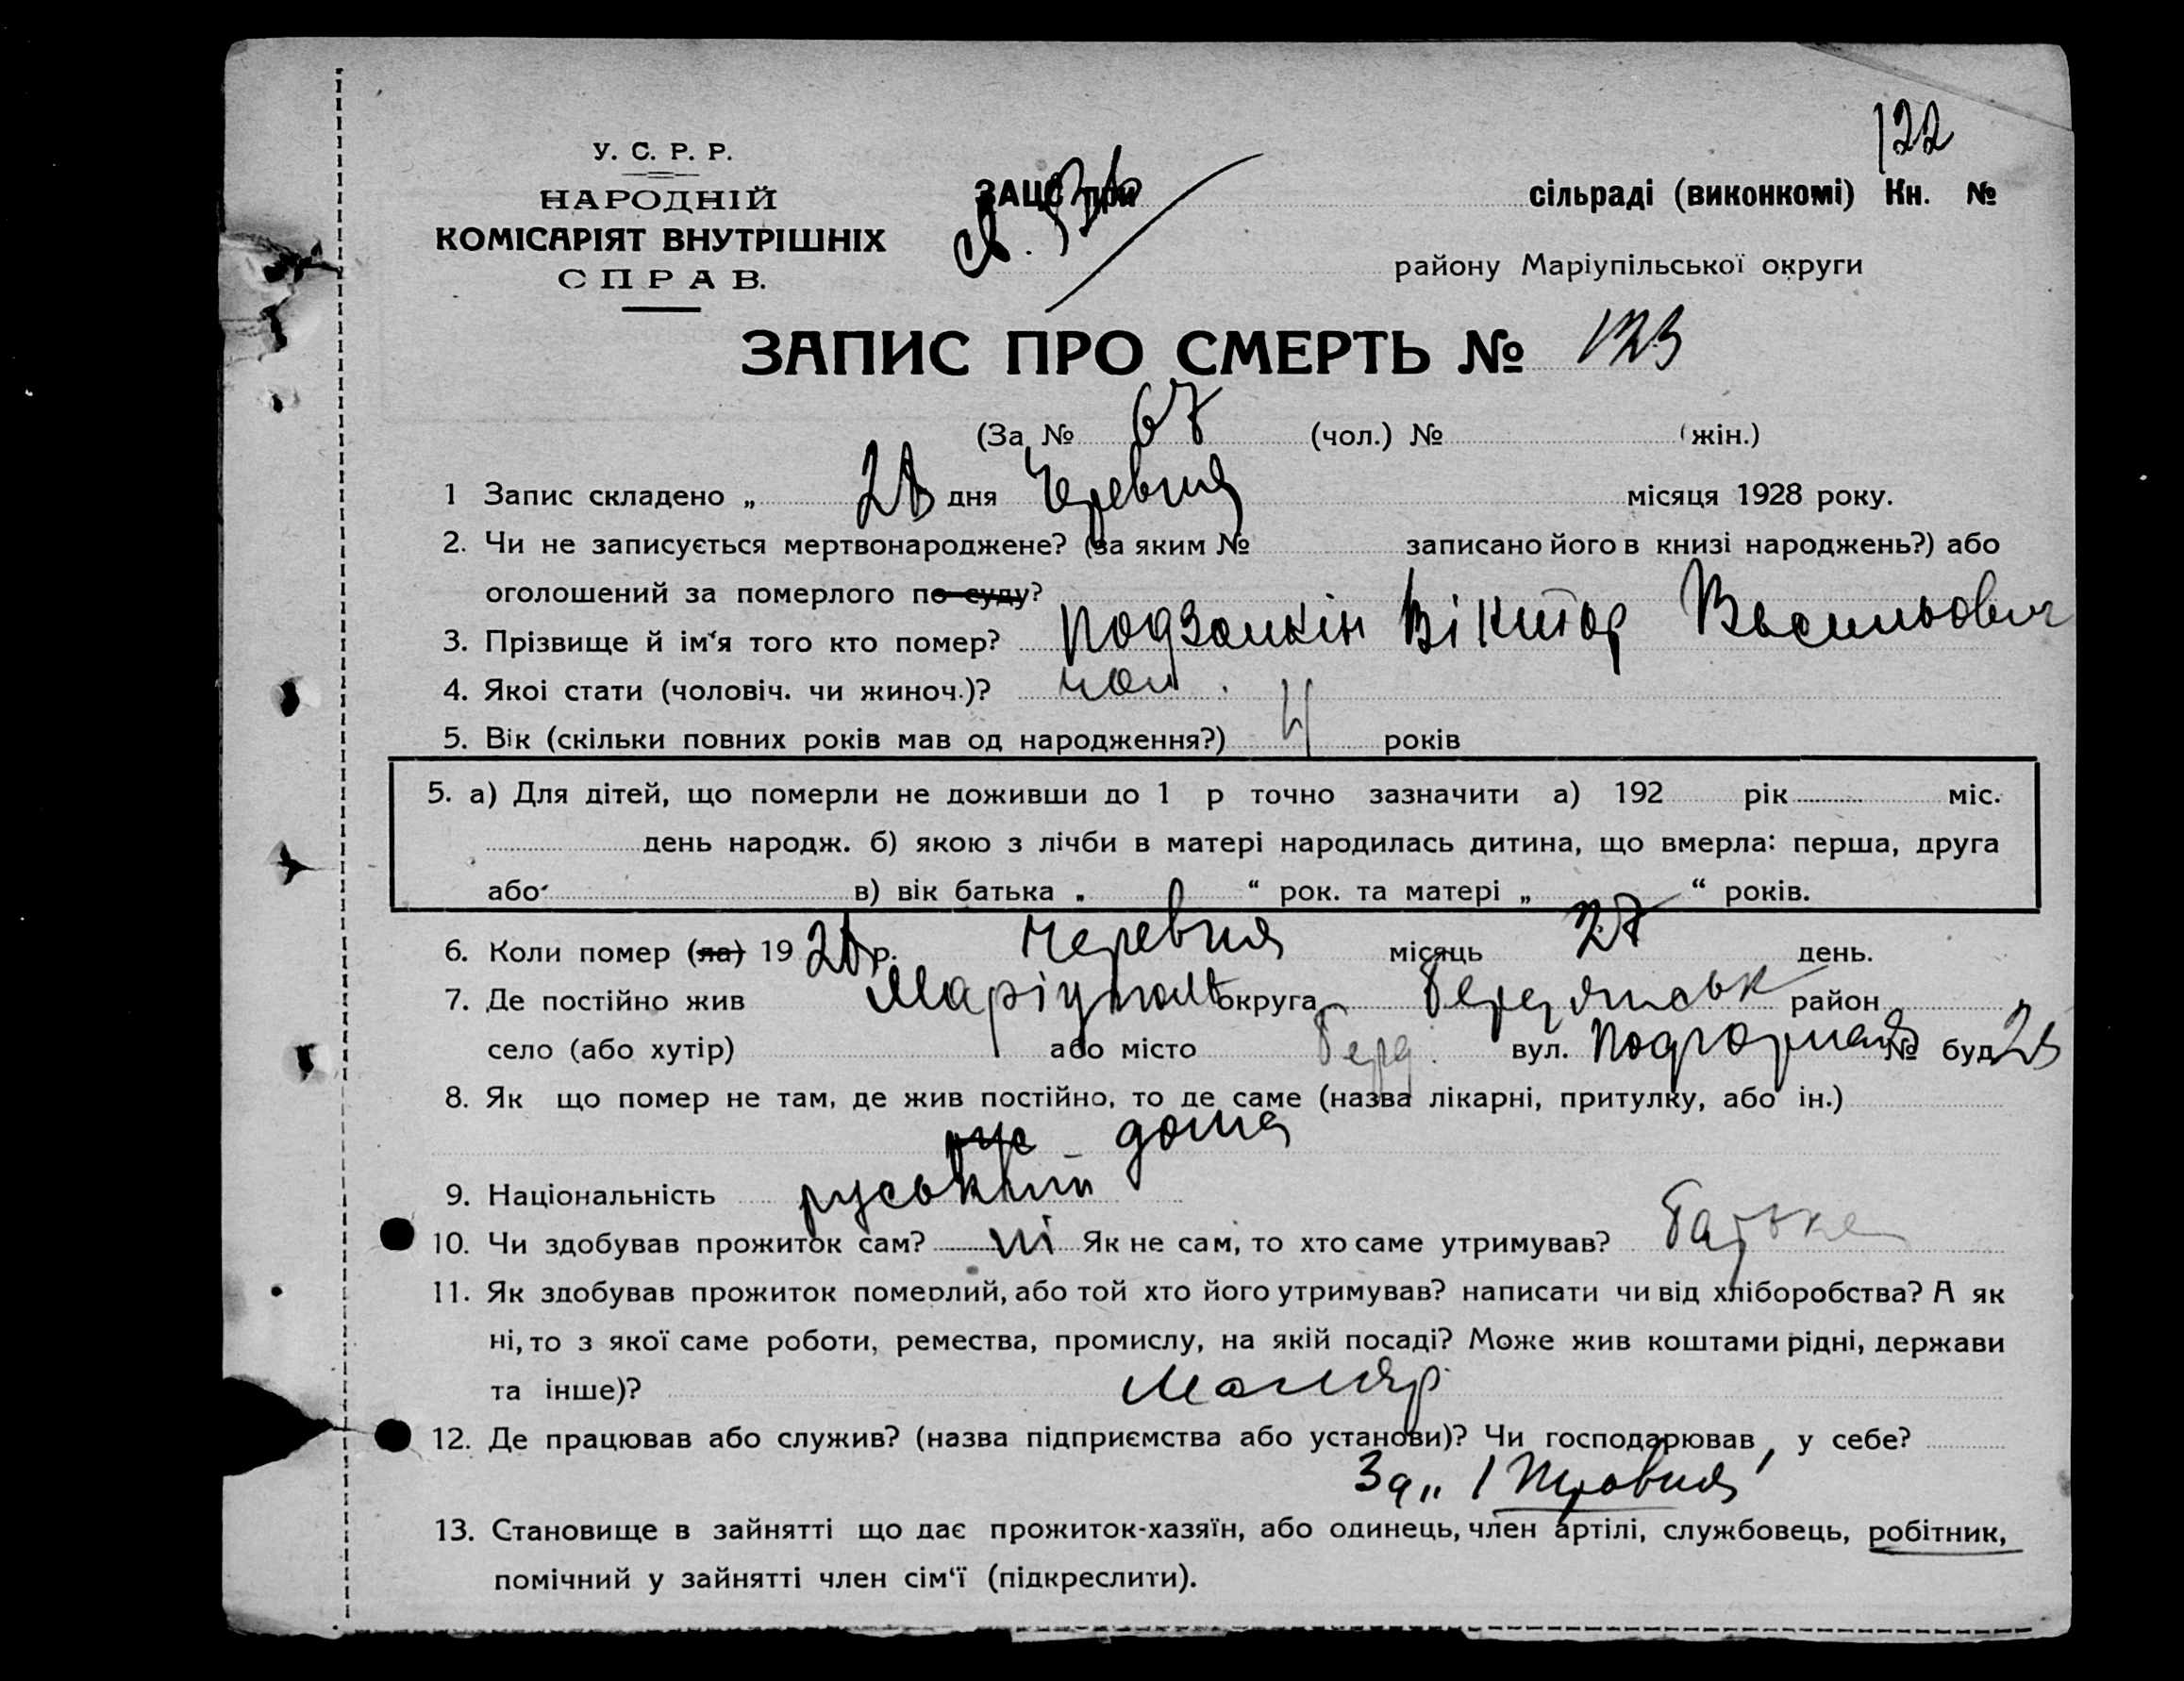 122
У. С. Р. Р.
НАРОДНІЙ
КОМІСАРІЯТ ВНУТРІШНІХ
СПРАВ.
ЗАЦС при сільраді (виконкомі) Кн. №
району Маріупільської округи
ЗАПИС ПРО СМЕРТЬ № 123
(За № 67 (чол.) № (жін.)
1 Запис складено „ 28 дня Червня місяця 1928 року.
2. Чи не записується мертвонароджене? (за яким № записано його в книзі народжень?) або
оголошений за померлого по суду?
3. Прізвище й ім'я того кто помер? Подзолкін Віктор Васильович
4. Якоі стати (чоловіч. чи жиноч.)? чол.
5. Вік (скільки повних років мав од народження?) 4 років
5. а) Для дітей, що померли не доживши до 1 р точно зазначити а) 192 рік міс.
день народж. б) якою з лічби в матері народилась дитина, що вмерла: перша, друга
або в) вік батька „ “ рок. та матері „ “ років.
6. Коли помер (ла) 1928 р. Червня місяць 27 день.
7. Де постійно жив Маріуполь округа Бердянськ район
село (або хутір) або місто Берд. вул. Подгорная № буд 23
8. Як що помер не там, де жив постійно, то де саме (назва лікарні, притулку, або ін.)
рус дома
9. Національність руський
10. Чи здобував прожиток сам? ні Як не сам, то хто саме утримував? Батько
11. Як здобував прожиток померлий, або той хто його утримував? написати чи від хліборобства? А як
ні, то з якої саме роботи, ремества, промислу, на якій посаді? Може жив коштами рідні, держави
та інше)? Маляр
12. Де працював або служив? (назва підприємства або установи)? Чи господарював у себе?
1 Травня
13. Становище в зайнятті що дає прожиток-хазяїн, або одинець, член артілі, службовець, робітник,
помічний у зайнятті член сім'ї (підкреслити).